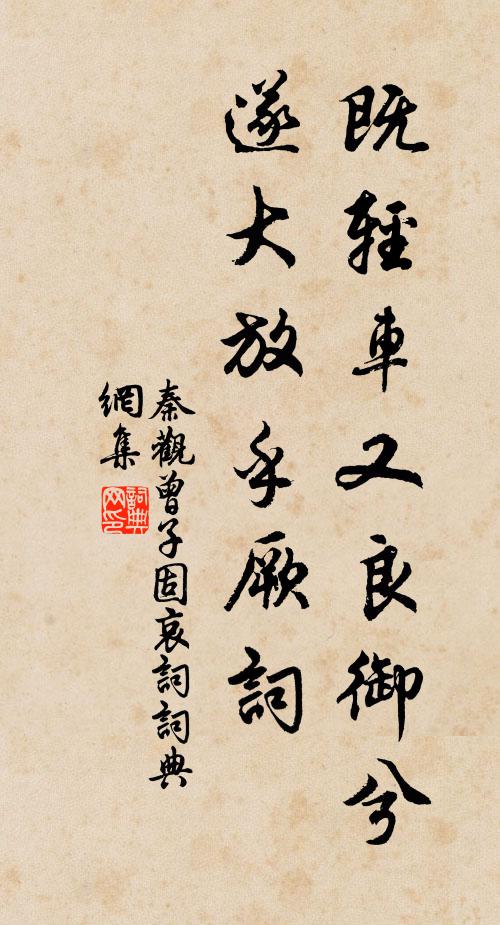 既輕車又良御兮
遂大放乎厥詞
秦觀曾子固哀詞詞典
網集
詞典
网印